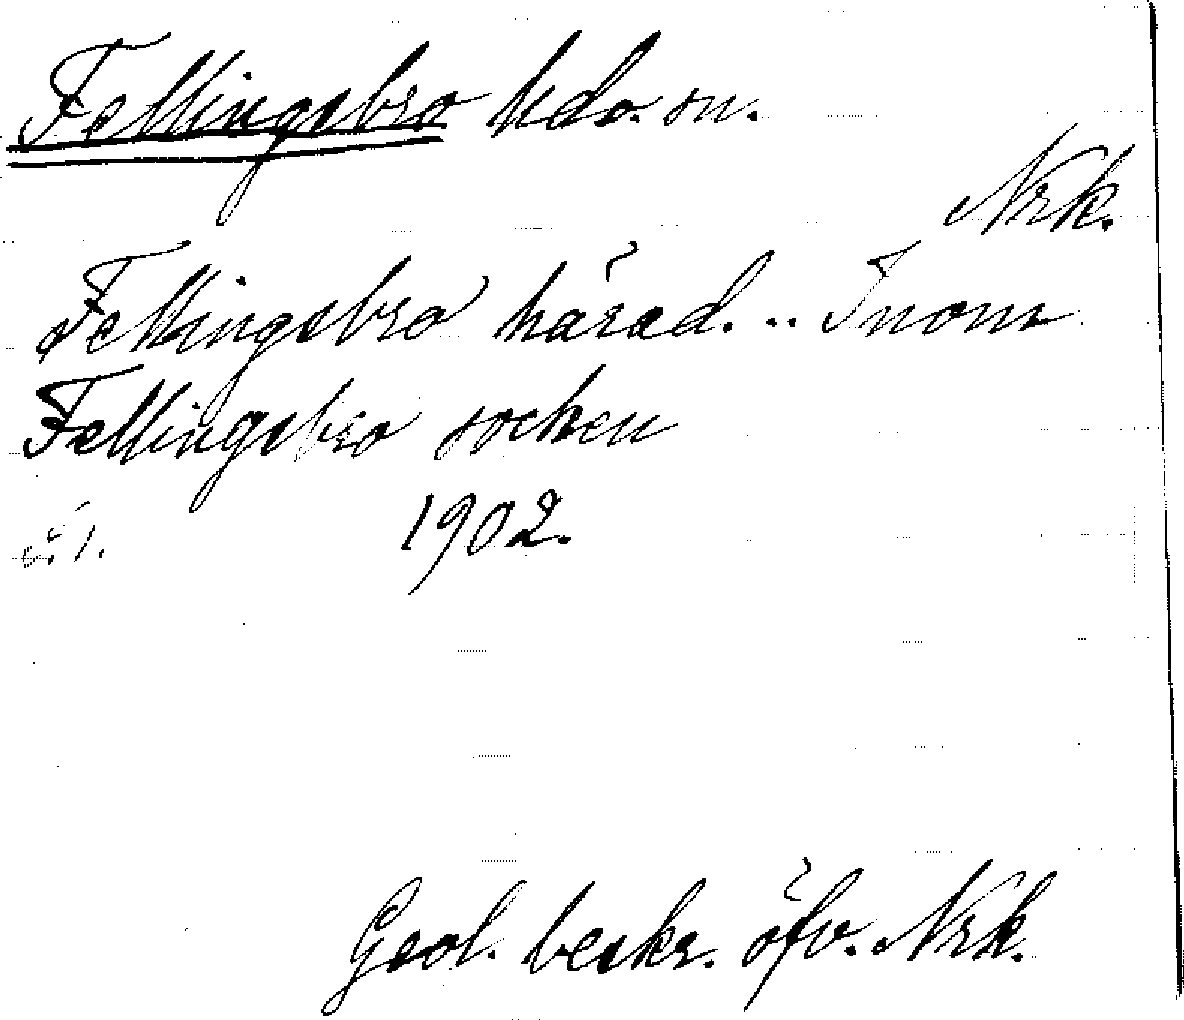 Fellingsbro hds. sn.
Nrk.
Fellingsbro härad. .. Inom
Fellingsbro socken
1902.
Geol. beskr. öfv. Nrk.